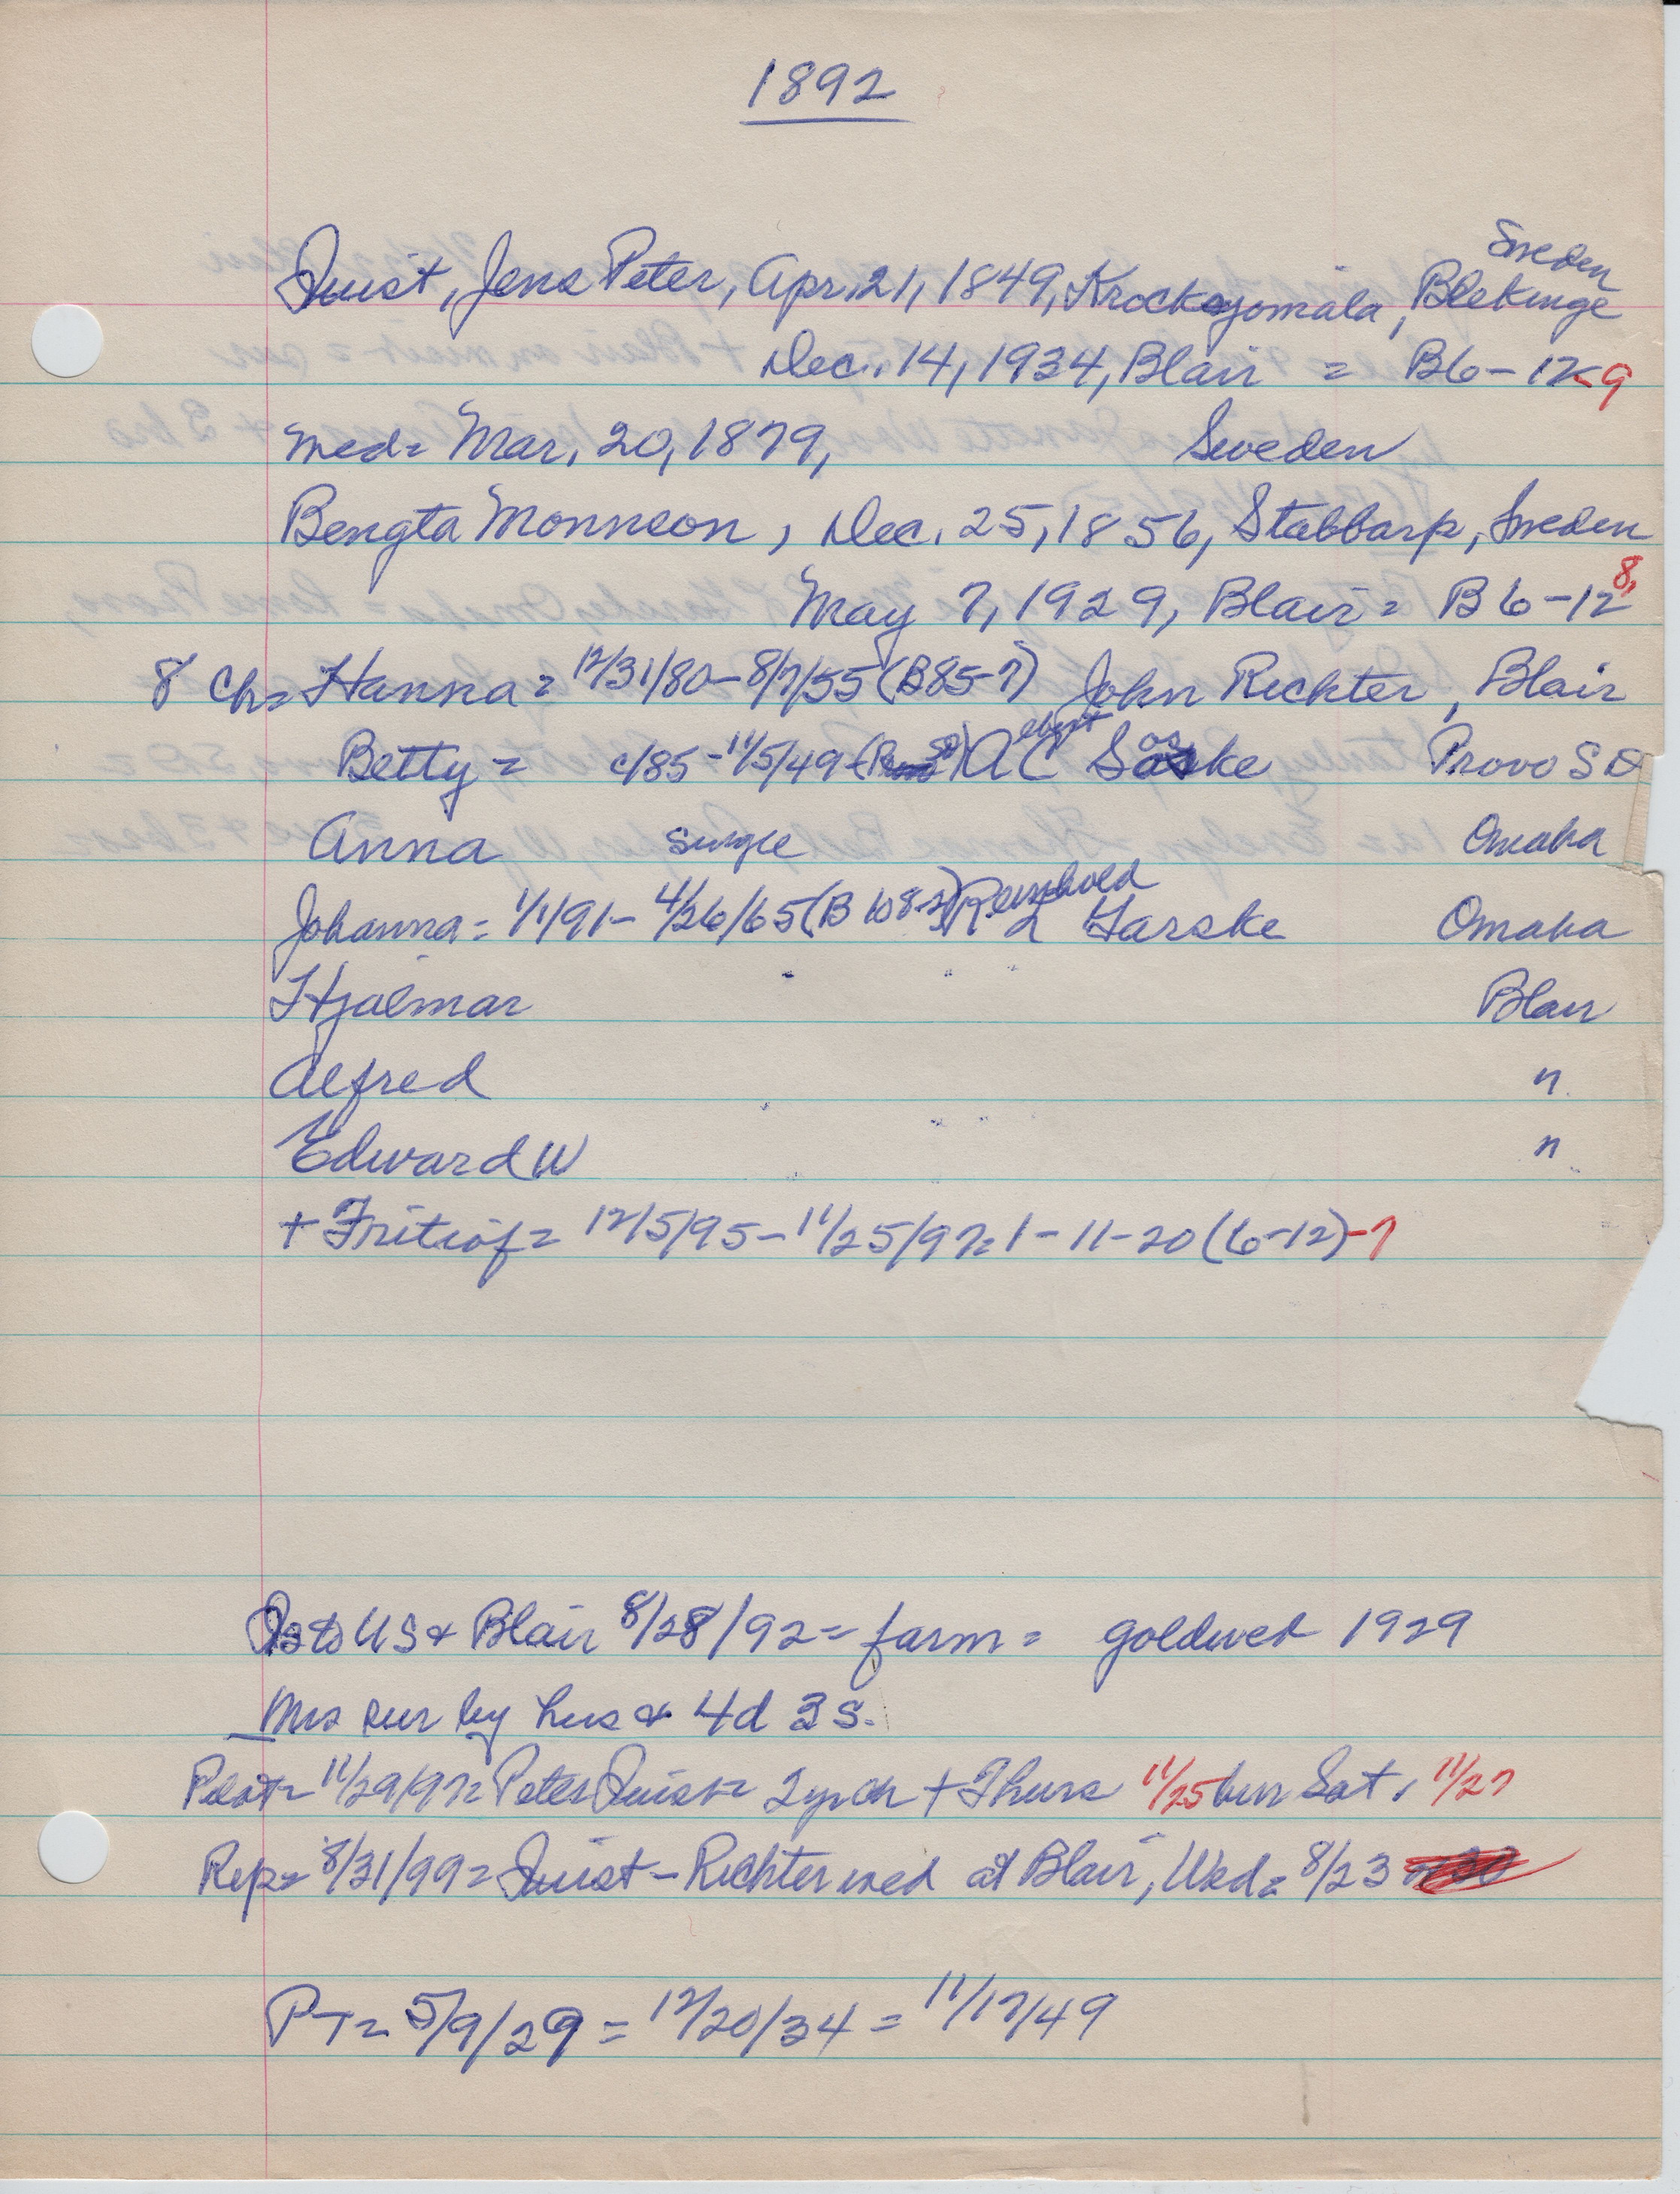 1892
Sweden
Quist, Jens Peter, Apr. 21, 1849, Krocksyomala, Blekinge
Dec. 14, 1934, Blair = B6-12-9
med= Mar. 20, 1879, Sweden
Bengta Monneson, Dec. 25, 1856, Stabbarp, Sweden
May 7, 1929, Blair= B6-12 8,
8 Ch= Hanna= 12/31/80-8/7/55 (B85-7) John Richter, Blair
Betty= c/85-11/5/49 A C Saske Provo SD
Anna single Omaha
Johanna= 1/1/91- 4/26/65 (B108-2) Reinhold Garske Omaha
Hjalmar Blair
Alfred "
Edward W "
+ Fritiof= 12/5/95-11/25/97= 1-11-20 (6-12)-7
to US & Blair 8/28/92= farm= goldwed 1929
Mrs sur by hus & 4d 3s.
Pilot= 11/29/97= Peter Quist= 2yr ch + Thurs 11/25 bur Sat, 11/27
Rep= 8/31/99= Quist-Richter med at Blair, Wed= 8/23
PT= 5/9/29 = 12/20/34 = 11/17/49